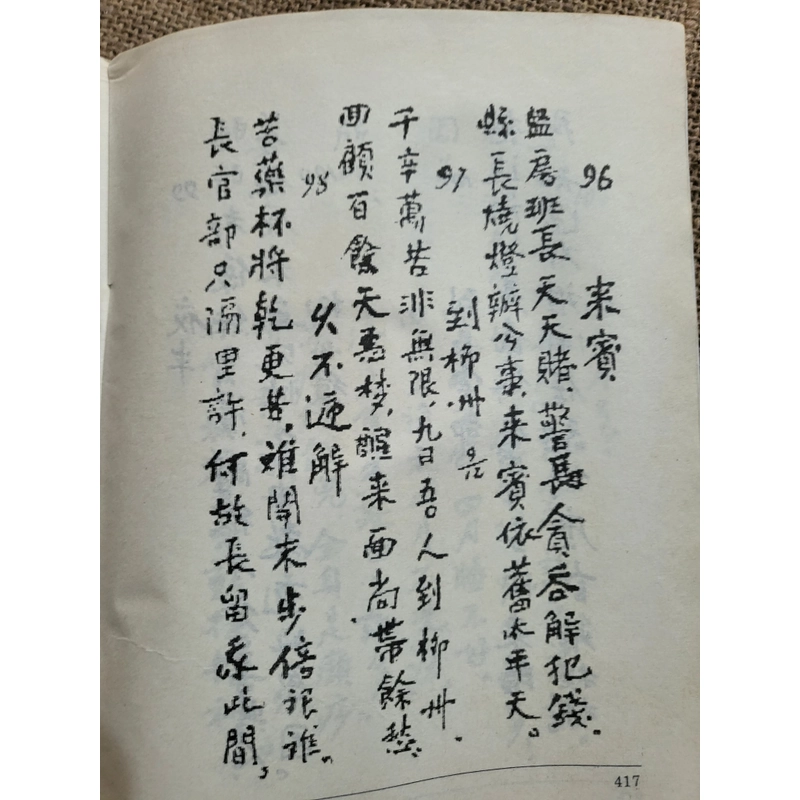 96 来賓
监房班長天天賭，警長貪吞解犯錢。
縣長燒燈辦公事，来賓依舊太平天。
97 到柳州 9/12
千辛萬苦非無限，九日吾人到柳州。
回顧百餘天惡梦，醒来面尚帶餘愁。
98 久不遞解
苦藥杯將乾更苦，难関末步倍艰难。
長官部只隔里許，何故長留我此間。
417